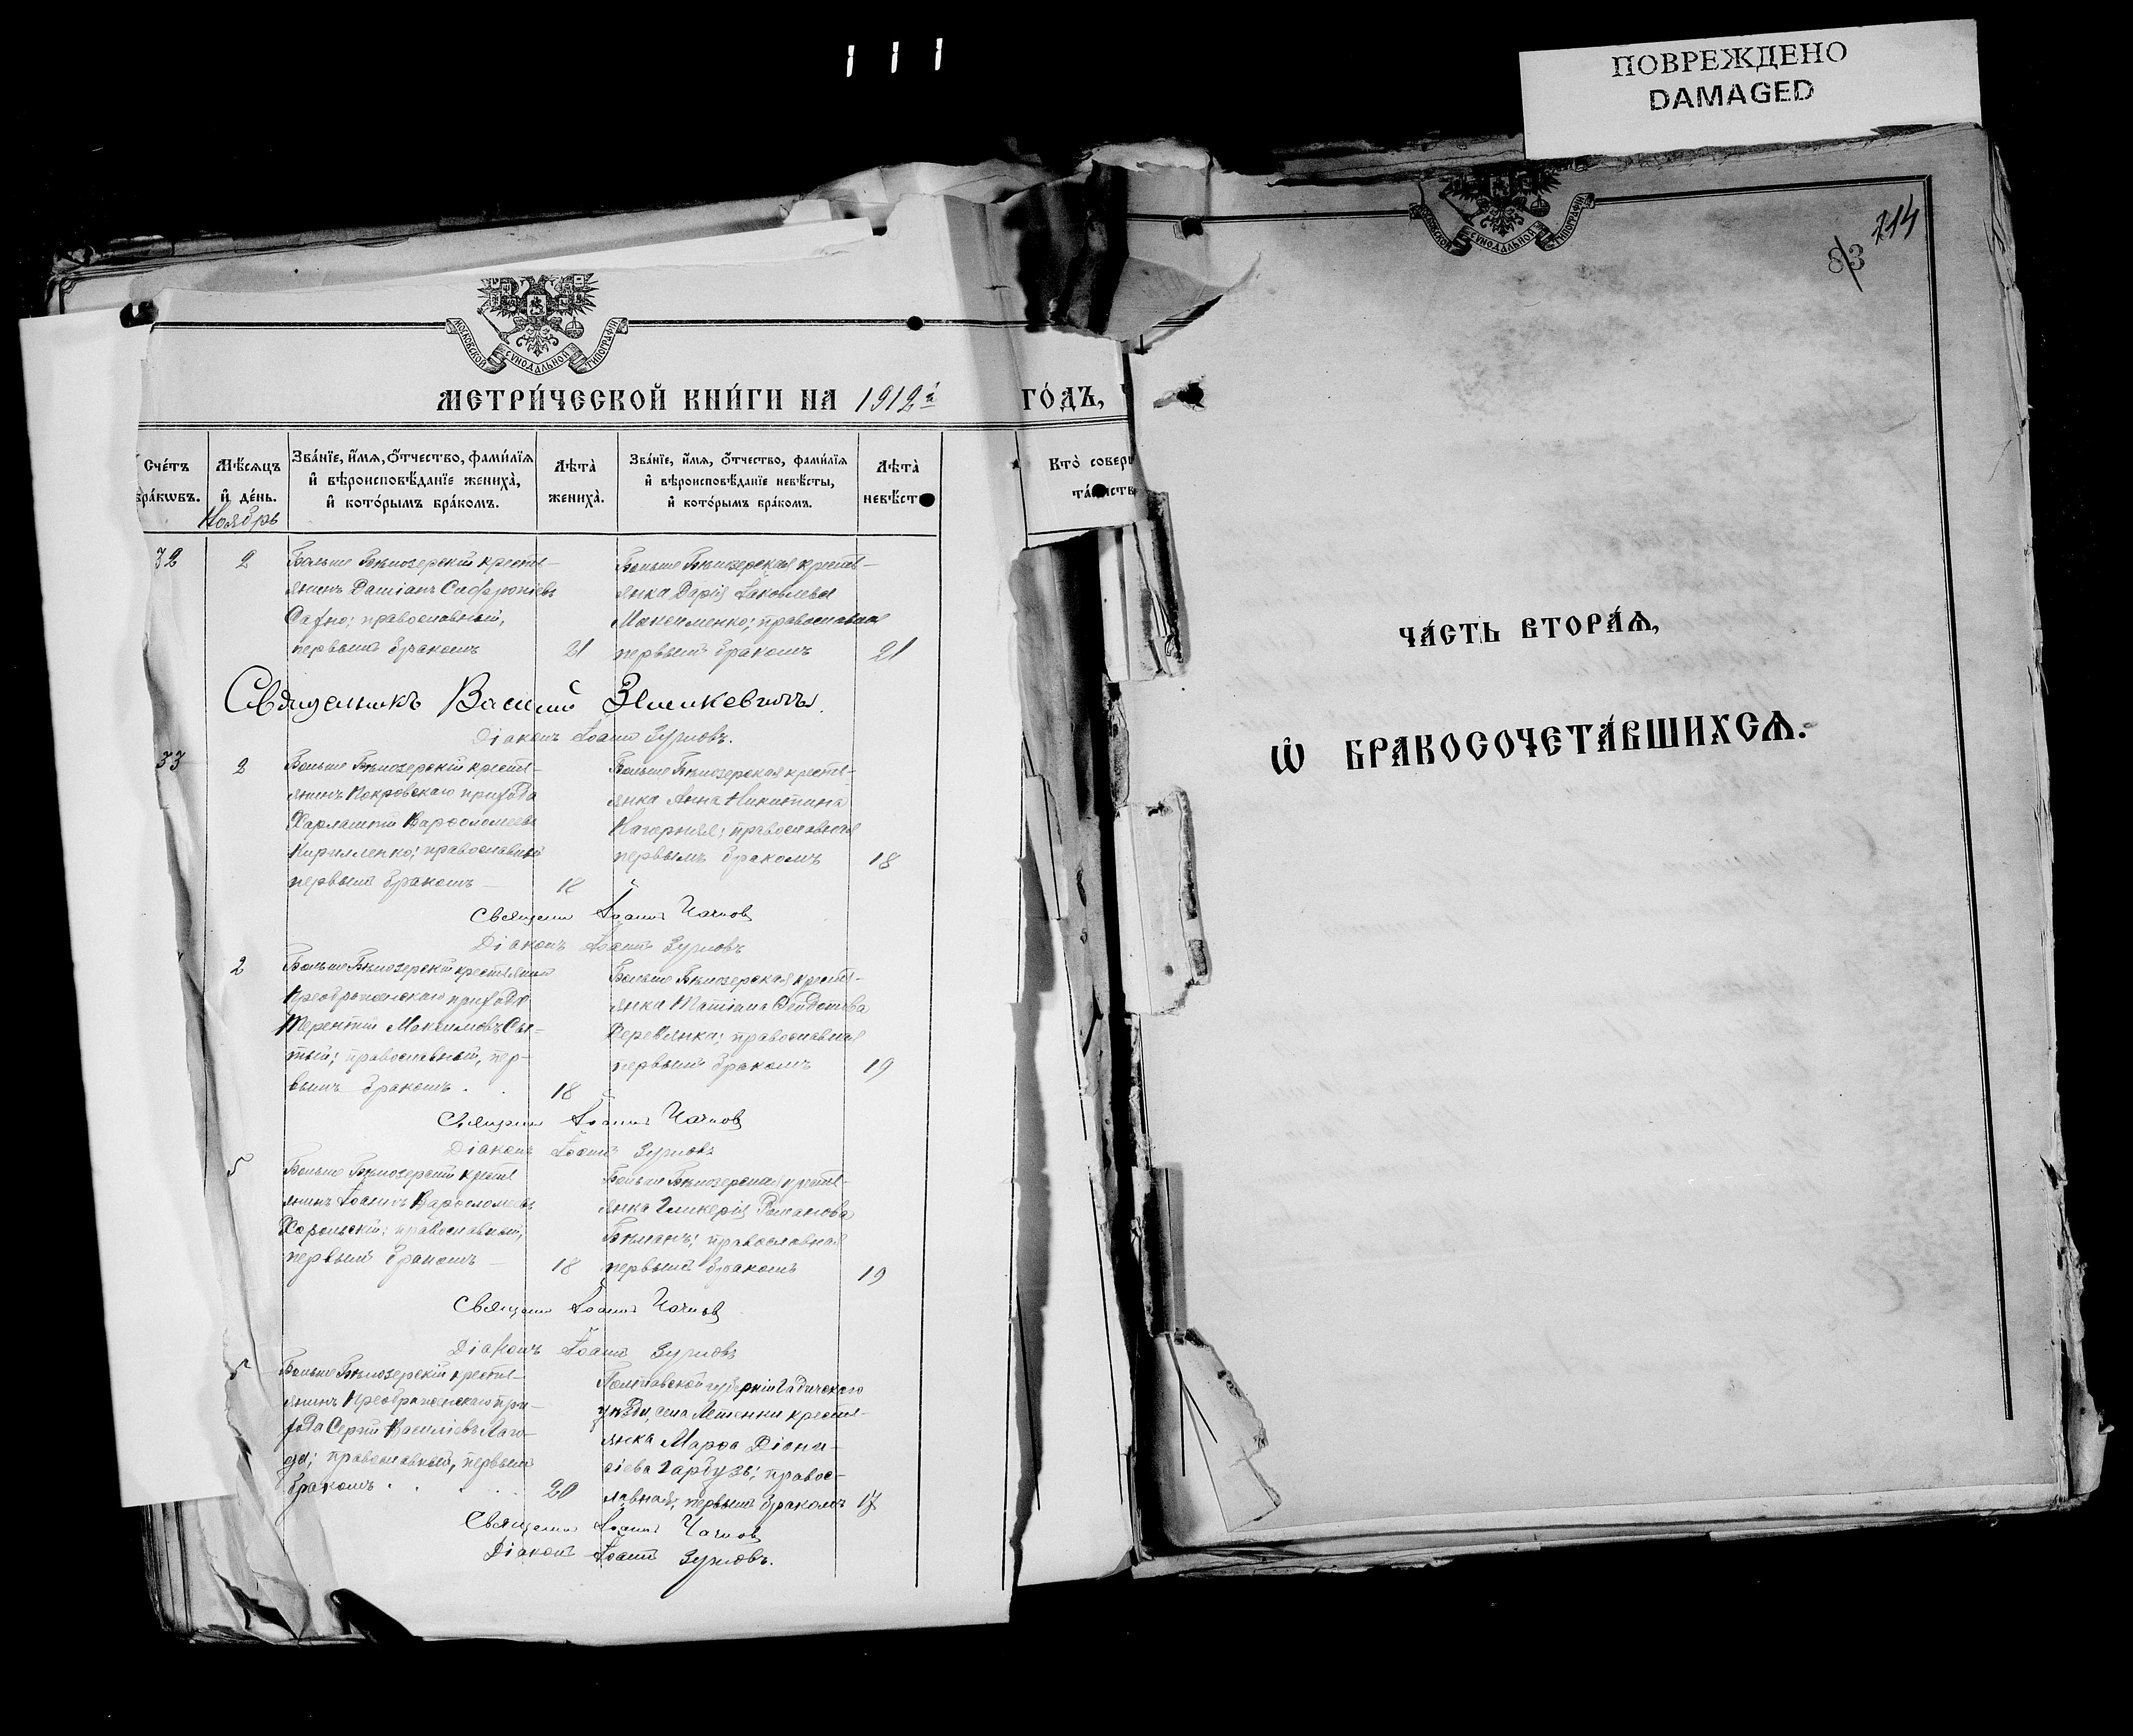 ПОВРЕЖДЕНО
DAMAGED
МОСКОВСКОЙ СУНОДАЛЬНОЙ ТИПОГРАФІИ
МЕТРИ́ЧЕСКОЙ КНИ́ГИ НА 1912й ГО́ДЪ,
Сче́тъ бра́кѡвъ.
Мѣ́сяцъ и де́нь.
Зва́нїе, и́мя, ѻ́тчество, фами́лїя и вѣроисповѣ́данїе жениха̀, и кото́рымъ бра́комъ.
Лѣта̀ жениха̀.
Зва́нїе, и́мя, ѻ́тчество, фами́лїя и вѣроисповѣ́данїе невѣ́сты, и кото́рымъ бра́комъ.
Лѣта̀ невѣ́ст
Кто̀ соверш
та́инств
Ноябрь
32
2
Больше Бѣлозерскій кресть-
янинъ Даміанъ Сафроніевъ
Сахно; православный,
первымъ бракомъ
21
Больше Бѣлозерская кресть-
янка Дарія Іаковлева
Максименко; православная
первымъ бракомъ
21
Священникъ Василій
Діаконъ Іоаннъ Зурновъ.
33
2
Больше Бѣлозерскій кресть-
янинъ Покровскаго прихода
Харлампій Варфоломеевъ
Кирилленко; православный
первымъ бракомъ
18
Больше Бѣлозерская кресть-
янка Анна Никитина
Нагорняя; православная
первымъ бракомъ
18
Священн Іоаннъ
Діаконъ Іоаннъ Зурновъ
2
Больше Бѣлозерскій крестьянинъ
Преображенскаго прихода
Терентій Максимовъ Сы-
тый; православный, пер-
вымъ бракомъ.
18
Больше Бѣлозерская кресть-
янка Татіана Ѳеодотова
Деревянка; православная
первымъ бракомъ
19
Священн Іоаннъ
Діаконъ Іоаннъ Зурновъ
5
Больше Бѣлозерскій кресть
янинъ Іоаннъ Варфоломеевъ
Хорольскій; православный,
первымъ бракомъ
18
Больше Бѣлозерская кресть-
янка Гликерія Романова
Бѣланъ; православная
первымъ бракомъ
19
Священн Іоаннъ
Діаконъ Іоаннъ Зурновъ
5
Больше Бѣлозерскій кресть-
янинъ Преображенскаго при-
хода Сергій Василіевъ Лаго-
да; православный, первымъ
бракомъ
20
Полтавской губерніи Гадичскаго
уѣзда, села Лютенки кресть-
янка Марѳа Діони-
сіева Гарбузъ; правос-
лавная; первымъ бракомъ
17
Священн Іоаннъ
Діаконъ Іоаннъ Зурновъ.
МОСКОВСКОЙ СУНОДАЛЬНОЙ ТИПОГРАФІИ
114
83
ЧА́СТЬ ВТОРА́Ѧ,
Ѡ҆ БРАКОСОЧЕТА́ВШИХСѦ.